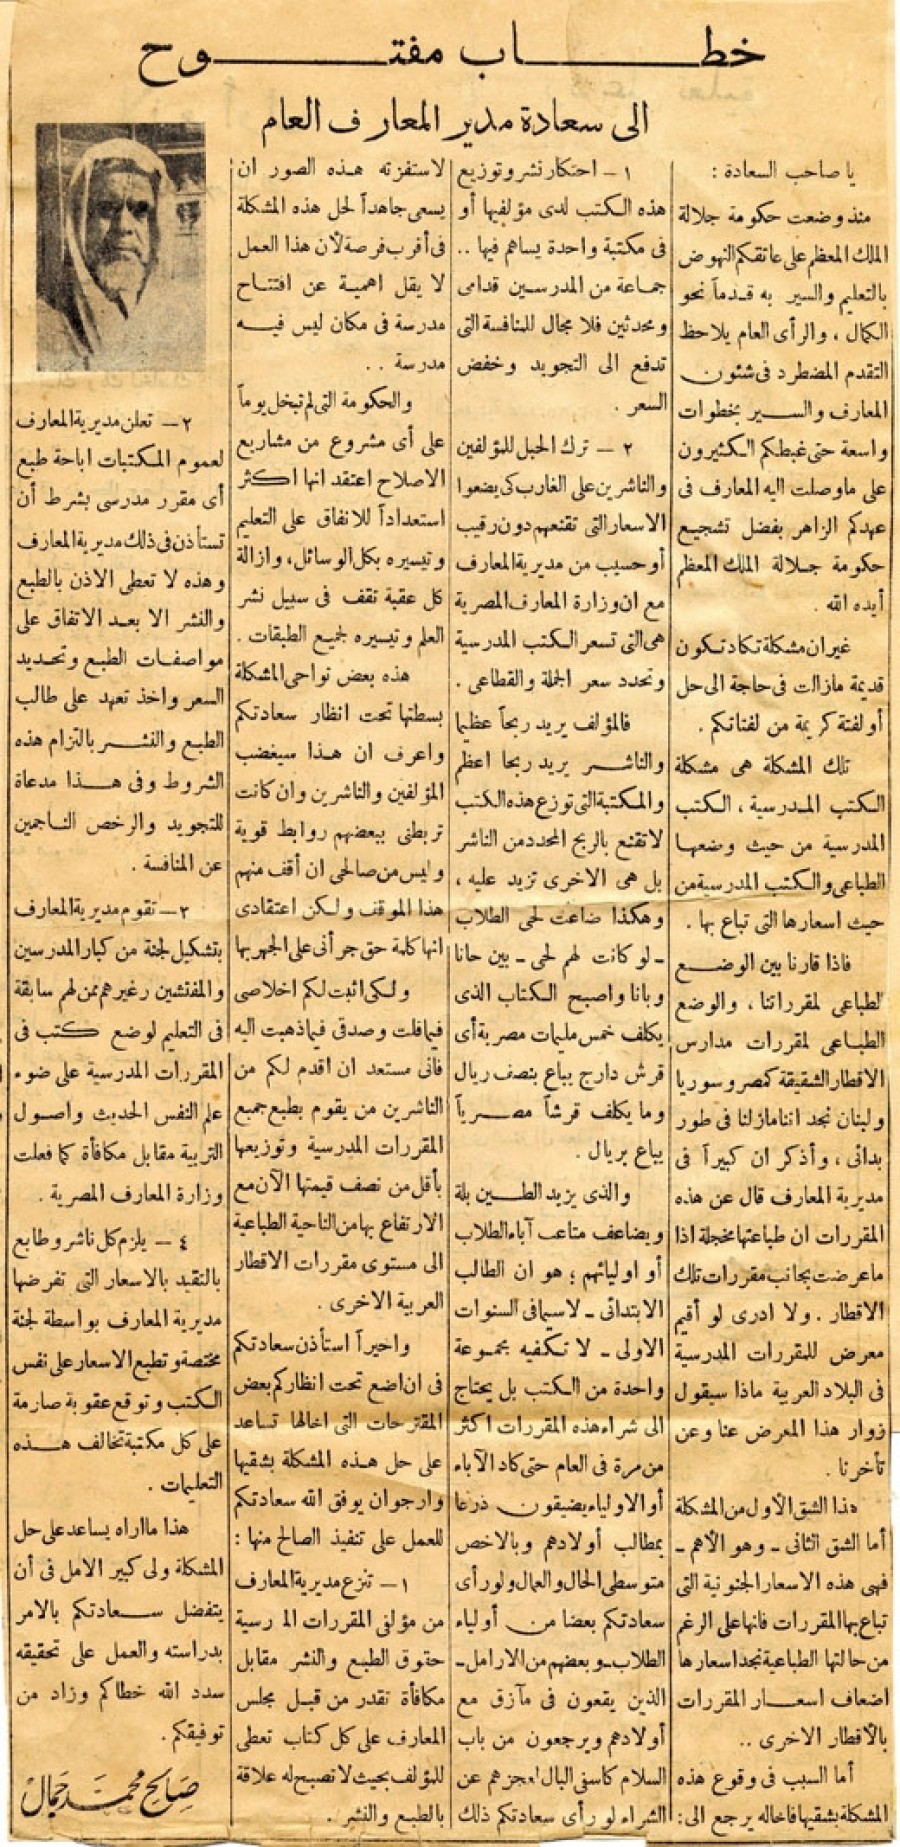 خطاب مفتوح
الى سعادة مدير المعارف العام
يا صاحب السعادة :
منذ وضعت حكومة جلالة
الملك المعظم على عاتقكم النهوض
بالتعليم والسير به قدماً نحو
الكمال ، والرأى العام يلاحظ
التقدم المضطرد فى شئون
المعارف والسير بخطوات
واسعة حتى غبطكم الكثيرون
على ما وصلت اليه المعارف فى
عهدكم الزاهر بفضل تشجيع
حكومة جلالة الملك المعظم
أيده الله .
غير ان مشكلة تكاد تكون
قديمة مازالت فى حاجة الى حل
أو لفتة كريمة من لفتاتكم .
تلك المشكلة هى مشكلة
الكتب المدرسية ، الكتب
المدرسية من حيث وضعها
الطباعى والكتب المدرسية من
حيث اسعارها التى تباع بها .
فاذا قارنا بين الوضع
الطباعى لمقرراتنا ، والوضع
الطباعى لمقررات مدارس
الاقطار الشقيقة كمصر وسوريا
ولبنان نجد اننا مازلنا فى طور
بدائى ، وأذكر ان كبيراً فى
مديرية المعارف قال عن هذه
المقررات ان طباعتها مخجلة اذا
ما عرضت بجانب مقررات تلك
الاقطار . ولا ادرى لو أقيم
معرض للمقررات المدرسية
فى البلاد العربية ماذا سيقول
زوار هذا المعرض عنا وعن
تأخرنا .
هذا الشق الأول من المشكلة
أما الشق الثانى - وهو الأهم -
فهى هذه الاسعار الجنونية التى
تباع بها المقررات فانها على الرغم
من حالتها الطباعية نجد اسعارها
اضعاف اسعار المقررات
بالأقطار الاخرى ..
أما السبب فى وقوع هذه
المشكلة بشقيها فاخاله يرجع الى :
١ - احتكار نشر وتوزيع
هذه الكتب لدى مؤلفيها أو
فى مكتبة واحدة يساهم فيها ..
جماعة من المدرسين قدامى
ومحدثين فلا مجال للمنافسة التى
تدفع الى التجويد وخفض
السعر .
٢ - ترك الحبل للمؤلفين
والناشرين على الغارب كى يضعوا
الاسعار التى تقنعهم دون رقيب
أو حسيب من مديرية المعارف
مع ان وزارة المعارف المصرية
هى التى تسعر الكتب المدرسية
وتحدد سعر الجملة والقطاعى .
فالمؤلف يريد ربحاً عظيما
والناشر يريد ربحا اعظم
والمكتبة التى توزع هذه الكتب
لا تقنع بالربح المحدد من الناشر
بل هى الاخرى تزيد عليه ،
وهكذا ضاعت لحى الطلاب
- لو كانت لهم لحى - بين حانا
وبانا واصبح الكتاب الذى
يكلف خمس مليمات مصرية أى
قرش دارج يباع بنصف ريال
وما يكلف قرشاً مصرياً
يباع بريال .
والذى يزيد الطين بلة
ويضاعف متاعب آباء الطلاب
أو اوليائهم ؛ هو ان الطالب
الابتدائى - لاسيما فى السنوات
الاولى - لا تكفيه مجموعة
واحدة من الكتب بل يحتاج
الى شراء هذه المقررات اكثر
من مرة فى العام حتى كاد الآباء
أو الاولياء يضيقون ذرعا
بمطالب أولادهم وبالاخص
متوسطى الحال والعمال ولو رأى
سعادتكم بعضا من أولياء
الطلاب - وبعضهم من الارامل -
الذين يقعون فى مآزق مع
أولادهم ويرجعون من باب
السلام كاسفى البال لعجزهم عن
الشراء لو رأى سعادتكم ذلك
لاستفزته هذه الصور ان
يسعى جاهداً لحل هذه المشكلة
فى أقرب فرصة لأن هذا العمل
لا يقل اهمية عن افتتاح
مدرسة فى مكان ليس فيه
مدرسة ..
والحكومة التى لم تبخل يوماً
على أى مشروع من مشاريع
الاصلاح اعتقد انها اكثر
استعداداً للانفاق على التعليم
وتيسيره بكل الوسائل ، وازالة
كل عقبة تقف فى سبيل نشر
العلم وتيسيره لجميع الطبقات .
هذه بعض نواحى المشكلة
بسطتها تحت انظار سعادتكم
واعرف ان هذا سيغضب
المؤلفين والناشرين وان كانت
تربطنى ببعضهم روابط قوية
وليس من صالحى ان أقف منهم
هذا الموقف ولكن اعتقادى
انها كلمة حق جرأنى على الجهر بها
ولكى اثبت لكم اخلاصى
فيما قلت وصدقى فيما ذهبت اليه
فانى مستعد ان اقدم لكم من
الناشرين من يقوم بطبع جميع
المقررات المدرسية وتوزيعها
بأقل من نصف قيمتها الآن مع
الارتفاع بها من الناحية الطباعية
الى مستوى مقررات الاقطار
العربية الاخرى .
واخيراً استأذن سعادتكم
فى ان اضع تحت انظاركم بعض
المقترحات التى اخالها تساعد
على حل هذه المشكلة بشقيها
وارجو ان يوفق الله سعادتكم
للعمل على تنفيذ الصالح منها :
١ - تنزع مديرية المعارف
من مؤلفى المقررات المدرسية
حقوق الطبع والنشر مقابل
مكافأة تقدر من قبل مجلس
المعارف على كل كتاب تعطى
للمؤلف بحيث لا تصبح له علاقة
بالطبع والنشر .
٢ - تعلن مديرية المعارف
لعموم المكتبات اباحة طبع
أى مقرر مدرسى بشرط أن
تستأذن فى ذلك مديرية المعارف
وهذه لا تعطى الاذن بالطبع
والنشر الا بعد الاتفاق على
مواصفات الطبع وتحديد
السعر واخذ تعهد على طالب
الطبع والنشر بالتزام هذه
الشروط وفى هذا مدعاة
للتجويد والرخص الناجمين
عن المنافسة .
٣ - تقوم مديرية المعارف
بتشكيل لجنة من كبار المدرسين
والمفتشين وغيرهم ممن لهم سابقة
فى التعليم لوضع كتب فى
المقررات المدرسية على ضوء
علم النفس الحديث واصول
التربية مقابل مكافأة كما فعلت
وزارة المعارف المصرية .
٤ - يلزم كل ناشر وطابع
بالتقيد بالاسعار التى تفرضها
مديرية المعارف بواسطة لجنة
مختصة وتطبع الاسعار على نفس
الكتب وتوقع عقوبة صارمة
على كل مكتبة تخالف هذه
التعليمات .
هذا ما اراه يساعد على حل
المشكلة ولى كبير الامل فى أن
يتفضل سعادتكم بالامر
بدراسته والعمل على تحقيقه
سدد الله خطاكم وزاد من
توفيقكم .
صالح محمد جمال